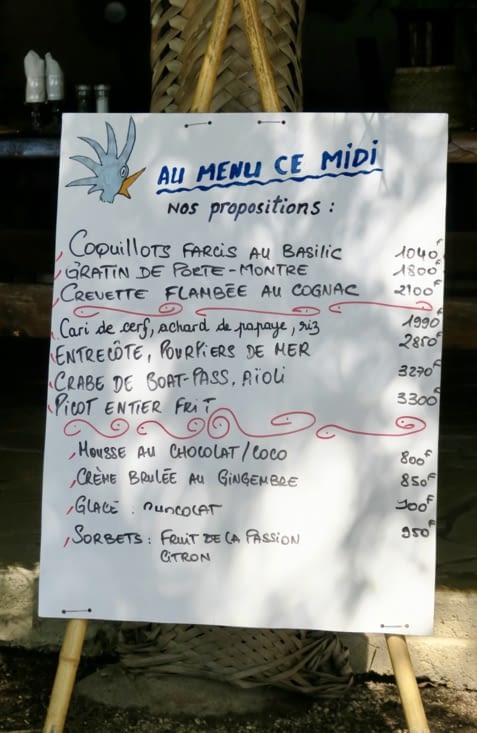 AU MENU CE MiDi
NOS propositions :
COQUILLOTS FARCIS AU BASILIC 1040F
GRATIN DE PORTE-MONTRE 1800F
CREVETTE FLAMBÉE AU COGNAC 2100F
Cari de cerf, achard de papaye, riz 1990F
ENTRECÔTE, POURPIERS DE MER 2850F
CRABE DE BOAT-PASS, AÏOLI 3270F
PICOT ENTIER FRIT 3300F
MOUSSE AU CHOCOLAT/COCO 800F
CRÈME BRULÉE AU GINGEMBRE 850F
GLACE : 
SORBETS : FRUIT DE LA PASSION 950F
CITRON